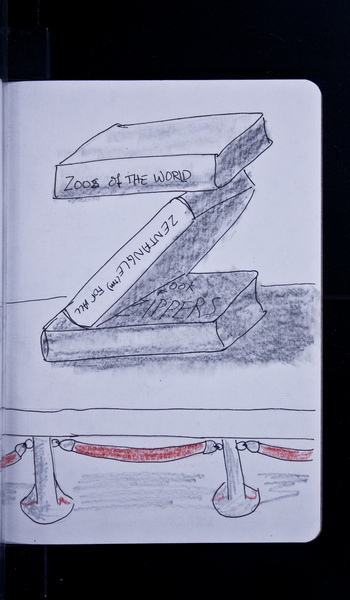 ZOOS OF THE WORLD
ZENTANGLE(TM) FOR ALL
ZIPPERS